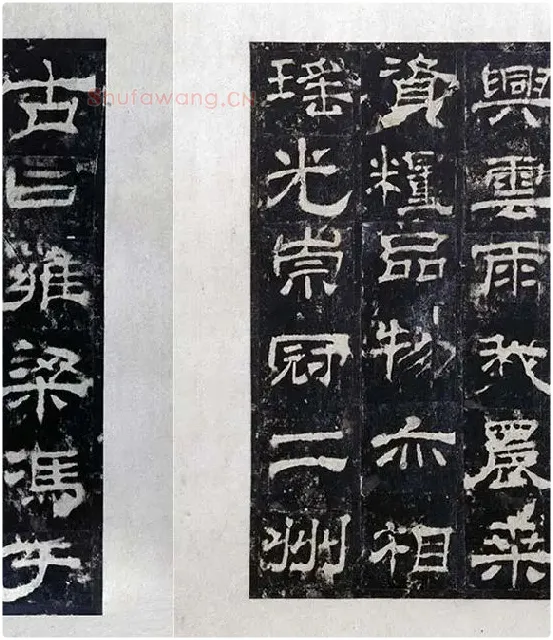 興雲雨我農桒
資糧品物亦相
瑤光崇冠二州
古曰雍梁馮于
Shufawang.CN